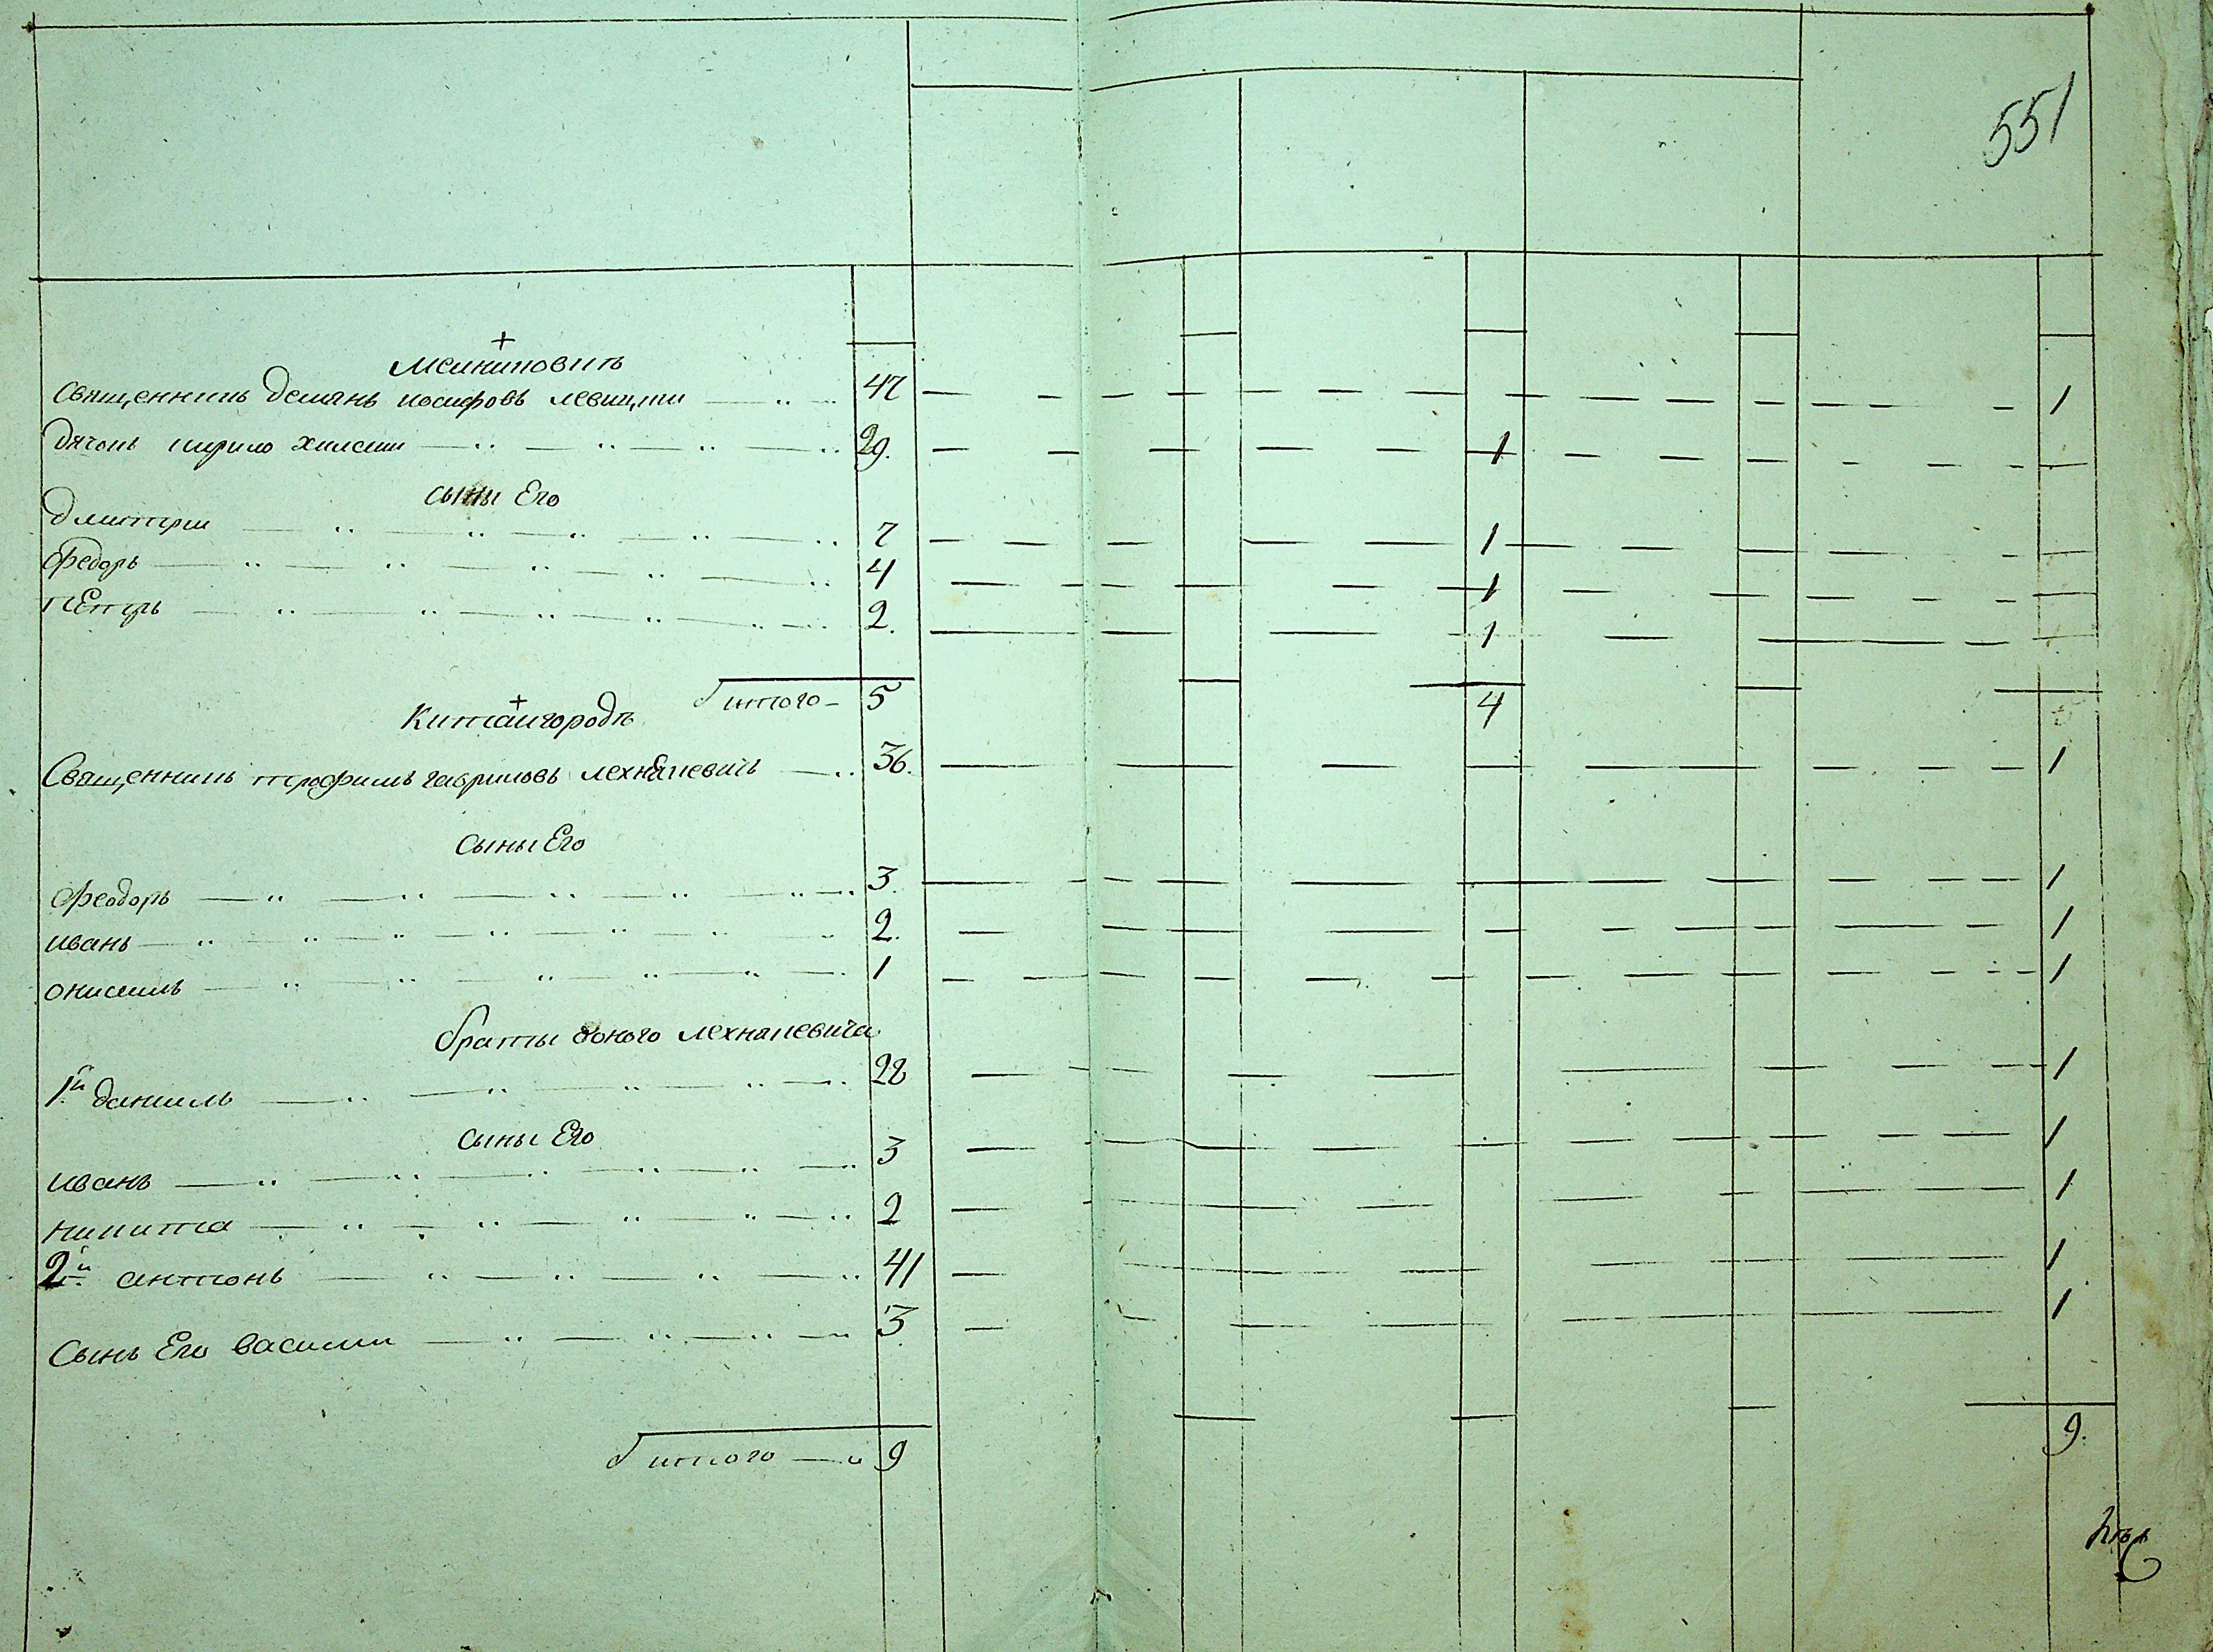 551
+
священникъ Демянъ иосифовъ левицкии 47 1
дячокъ кирило 29. 1
сыны Его
Дмитрии 7 1
Федоръ 4 1
пЕтръ 2. 1
итого 5 4
+
Китаигородъ
Священникъ трофимъ гавриловъ лехнакевичъ 36. 1
Сыны Его
Феодоръ 3. 1
иванъ 2. 1
онисимъ 1 1
браты оного лехнакевича
1й даниилъ 28 1
сыны Его
иванъ 3 1
никита 2 1
2й антонъ 41 1
Сынъ Его василии 3 1
итого 9 9.